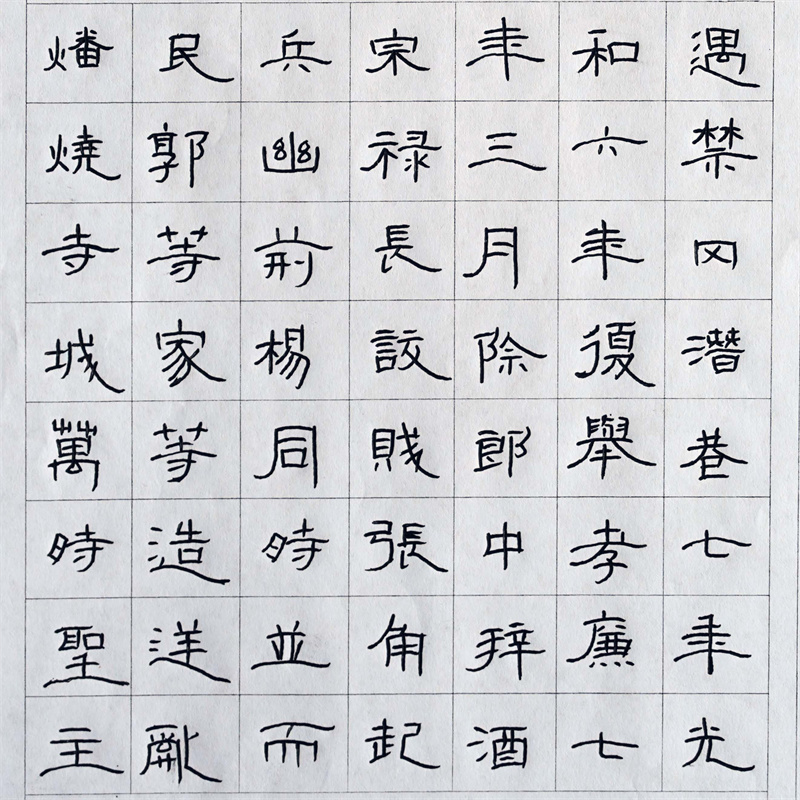 遇禁冈潛巷七年光
和六年復舉孝廉七
年三月除郎中拜酒
宗禄長訞賊張角起
兵幽荊楊同時並而
民郭等家等造逆亂
燔燒寺城萬時聖主